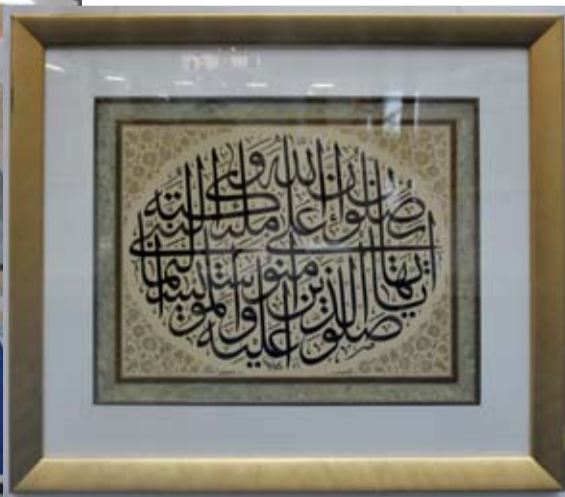 ان الله وملئكته يصلون على النبى
يا ايها الذين امنوا صلوا عليه وسلموا تسليما